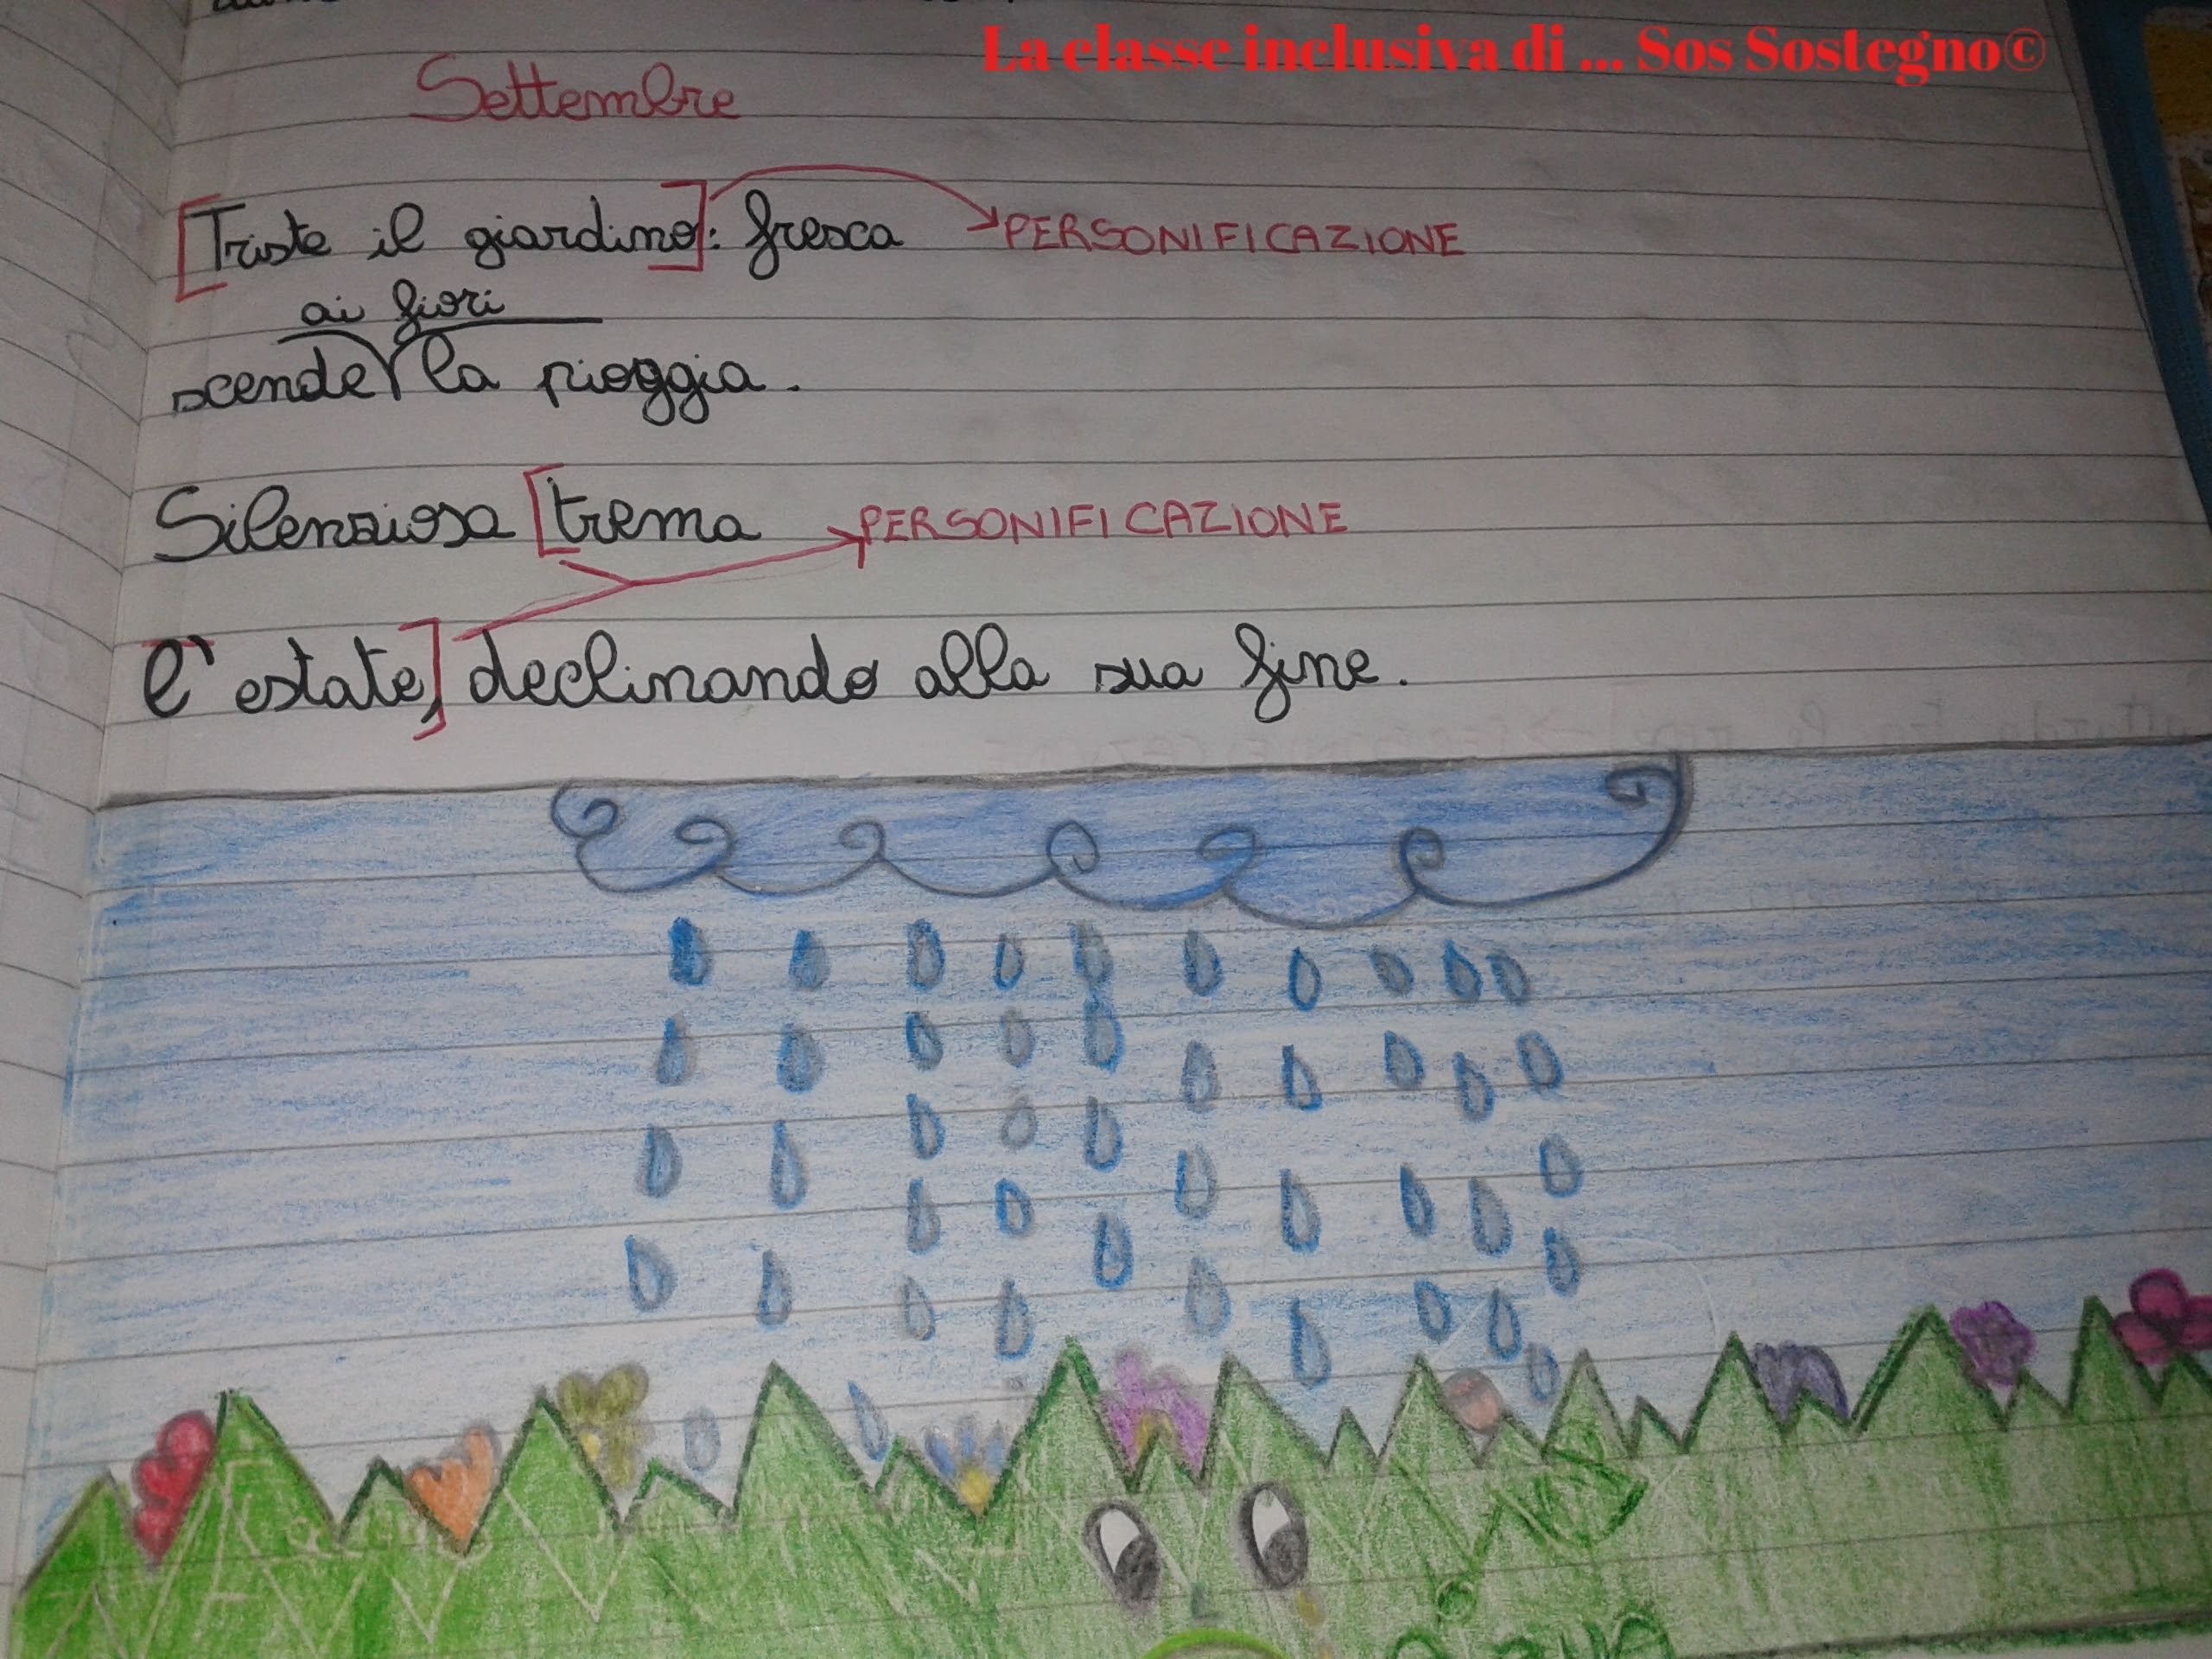 La classe inclusiva di ... Sos Sostegno©
Settembre
[Triste il giardino]: fresca → PERSONIFICAZIONE
ai fiori
scende la pioggia.
Silenziosa [trema → PERSONIFICAZIONE
l'estate,] declinando alla sua fine.